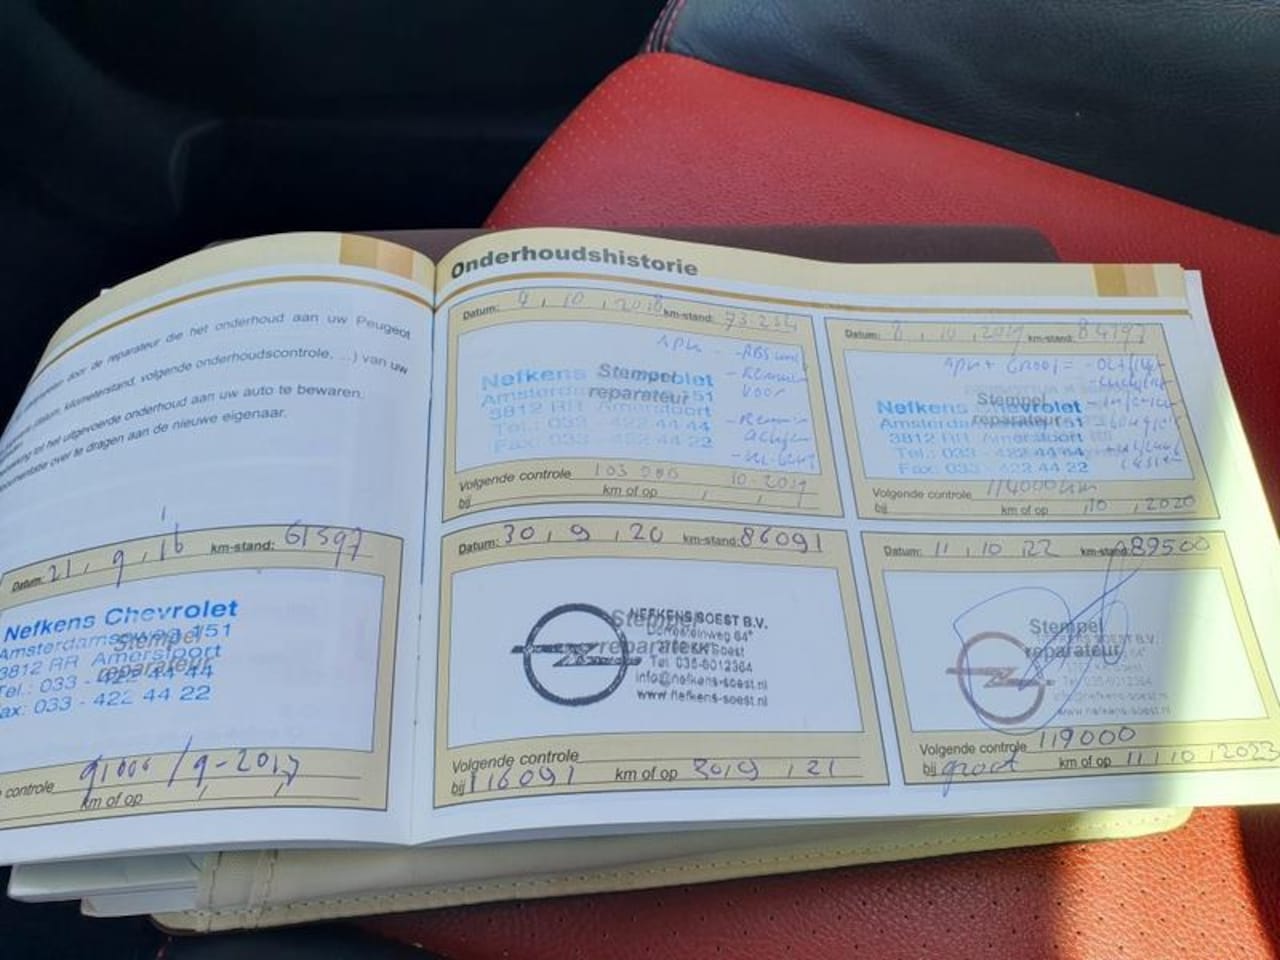 reparateur die het onderhoud aan uw Peugeot
kilometerstand, volgende onderhoudscontrole, ...) van uw
tot het uitgevoerde onderhoud aan uw auto te bewaren.
over te dragen aan de nieuwe eigenaar.
Datum: 21, 9, 16 km-stand: 61597
Nefkens Chevrolet
Amsterdamseweg 151
Stempel
3812 RR Amersfoort
reparateur
Tel.: 033 - 422 44 44
Fax: 033 - 422 44 22
controle 91000 / 9-2017
km of op
Onderhoudshistorie
Datum: 4, 10, 2018 km-stand: 73.254
APK - ABS
Nefkens Chevrolet
Stempel
reparateur
Amsterdamseweg 151
3812 RR Amersfoort
Tel.: 033 - 422 44 44
Fax: 033 - 422 44 22
- Remmen
voor
- Remmen
achter
Volgende controle 103 000 10-2019
bij km of op
Datum: 8, 10, 2019 km-stand: 84797
APK + Groot =
Nefkens Chevrolet
Stempel
reparateur
Amsterdamseweg 151
3812 RR Amersfoort
Tel.: 033 - 422 44 44
Fax: 033 - 422 44 22
Volgende controle 114000 km
bij km of op 10, 2020
Datum: 30, 9, 20 km-stand: 86091
Stempel
reparateur
NEFKENS SOEST B.V.
Soest
Tel. 035-6012364
info@nefkens-soest.nl
www.nefkens-soest.nl
Volgende controle
bij 116091 km of op 30, 9, 21
Datum: 11, 10 22 km-stand: 89500
Stempel
reparateur
NEFKENS SOEST B.V.
Soest
Tel. 035-6012364
info@nefkens-soest.nl
www.nefkens-soest.nl
Volgende controle 119000
bij groot km of op 11, 10, 2023